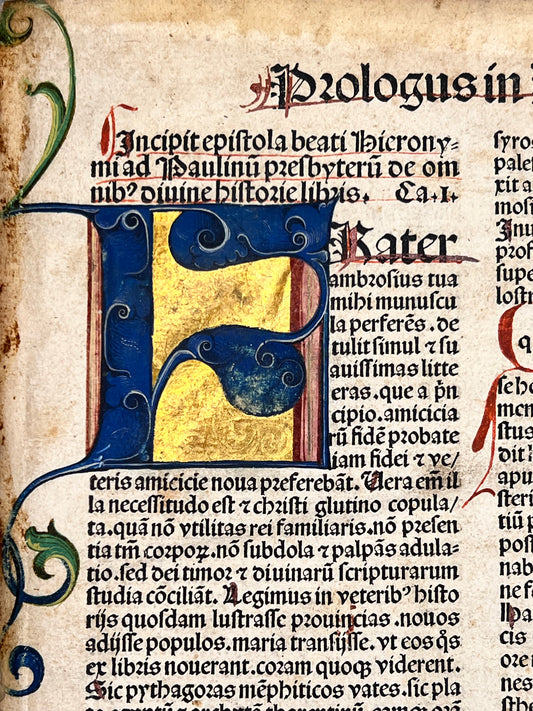 Prologus in
Incipit epistola beati Hierony-
mi ad Paulinū presbyterū de om
nibꝰ diuine historie libris. Ca.I.
FRater
ambrosius tua
mihi munuscu
la perferēs. de
tulit simul ⁊ su
auissimas litte
ras. que a pͥn
cipio. amicicia
rū fidē probate
iam fidei ⁊ ve/
teris amicicie noua preferebāt. Uera em̄ il
la necessitudo est ⁊ christi glutino copula/
ta. quā nō vtilitas rei familiaris. nō presen
tia tm̄ corpoꝝ. nō subdola ⁊ palpās adula-
tio. sed dei timor ⁊ diuinarū scripturarum
studia cōciliāt. Legimus in veteribꝰ histo
rijs quosdam lustrasse prouincias. nouos
adijsse populos. maria transijsse. vt eos q̄s
ex libris nouerant. coram quoqꝫ viderent.
Sic pythagoras mēphiticos vates. sic pla
syros
pale
xit a
mosi
Inu
prof
supe
lostr
q
se ho
men
stus
dit
apu
steri
tiū p
post
nab
ne fe
cis
ore
nes